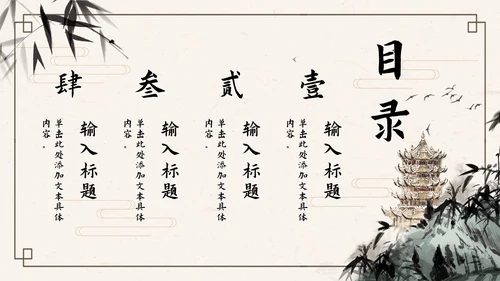 目录
壹
输入标题
单击此处添加文本具体
内容。
贰
输入标题
单击此处添加文本具体
内容。
叁
输入标题
单击此处添加文本具体
内容。
肆
输入标题
单击此处添加文本具体
内容。